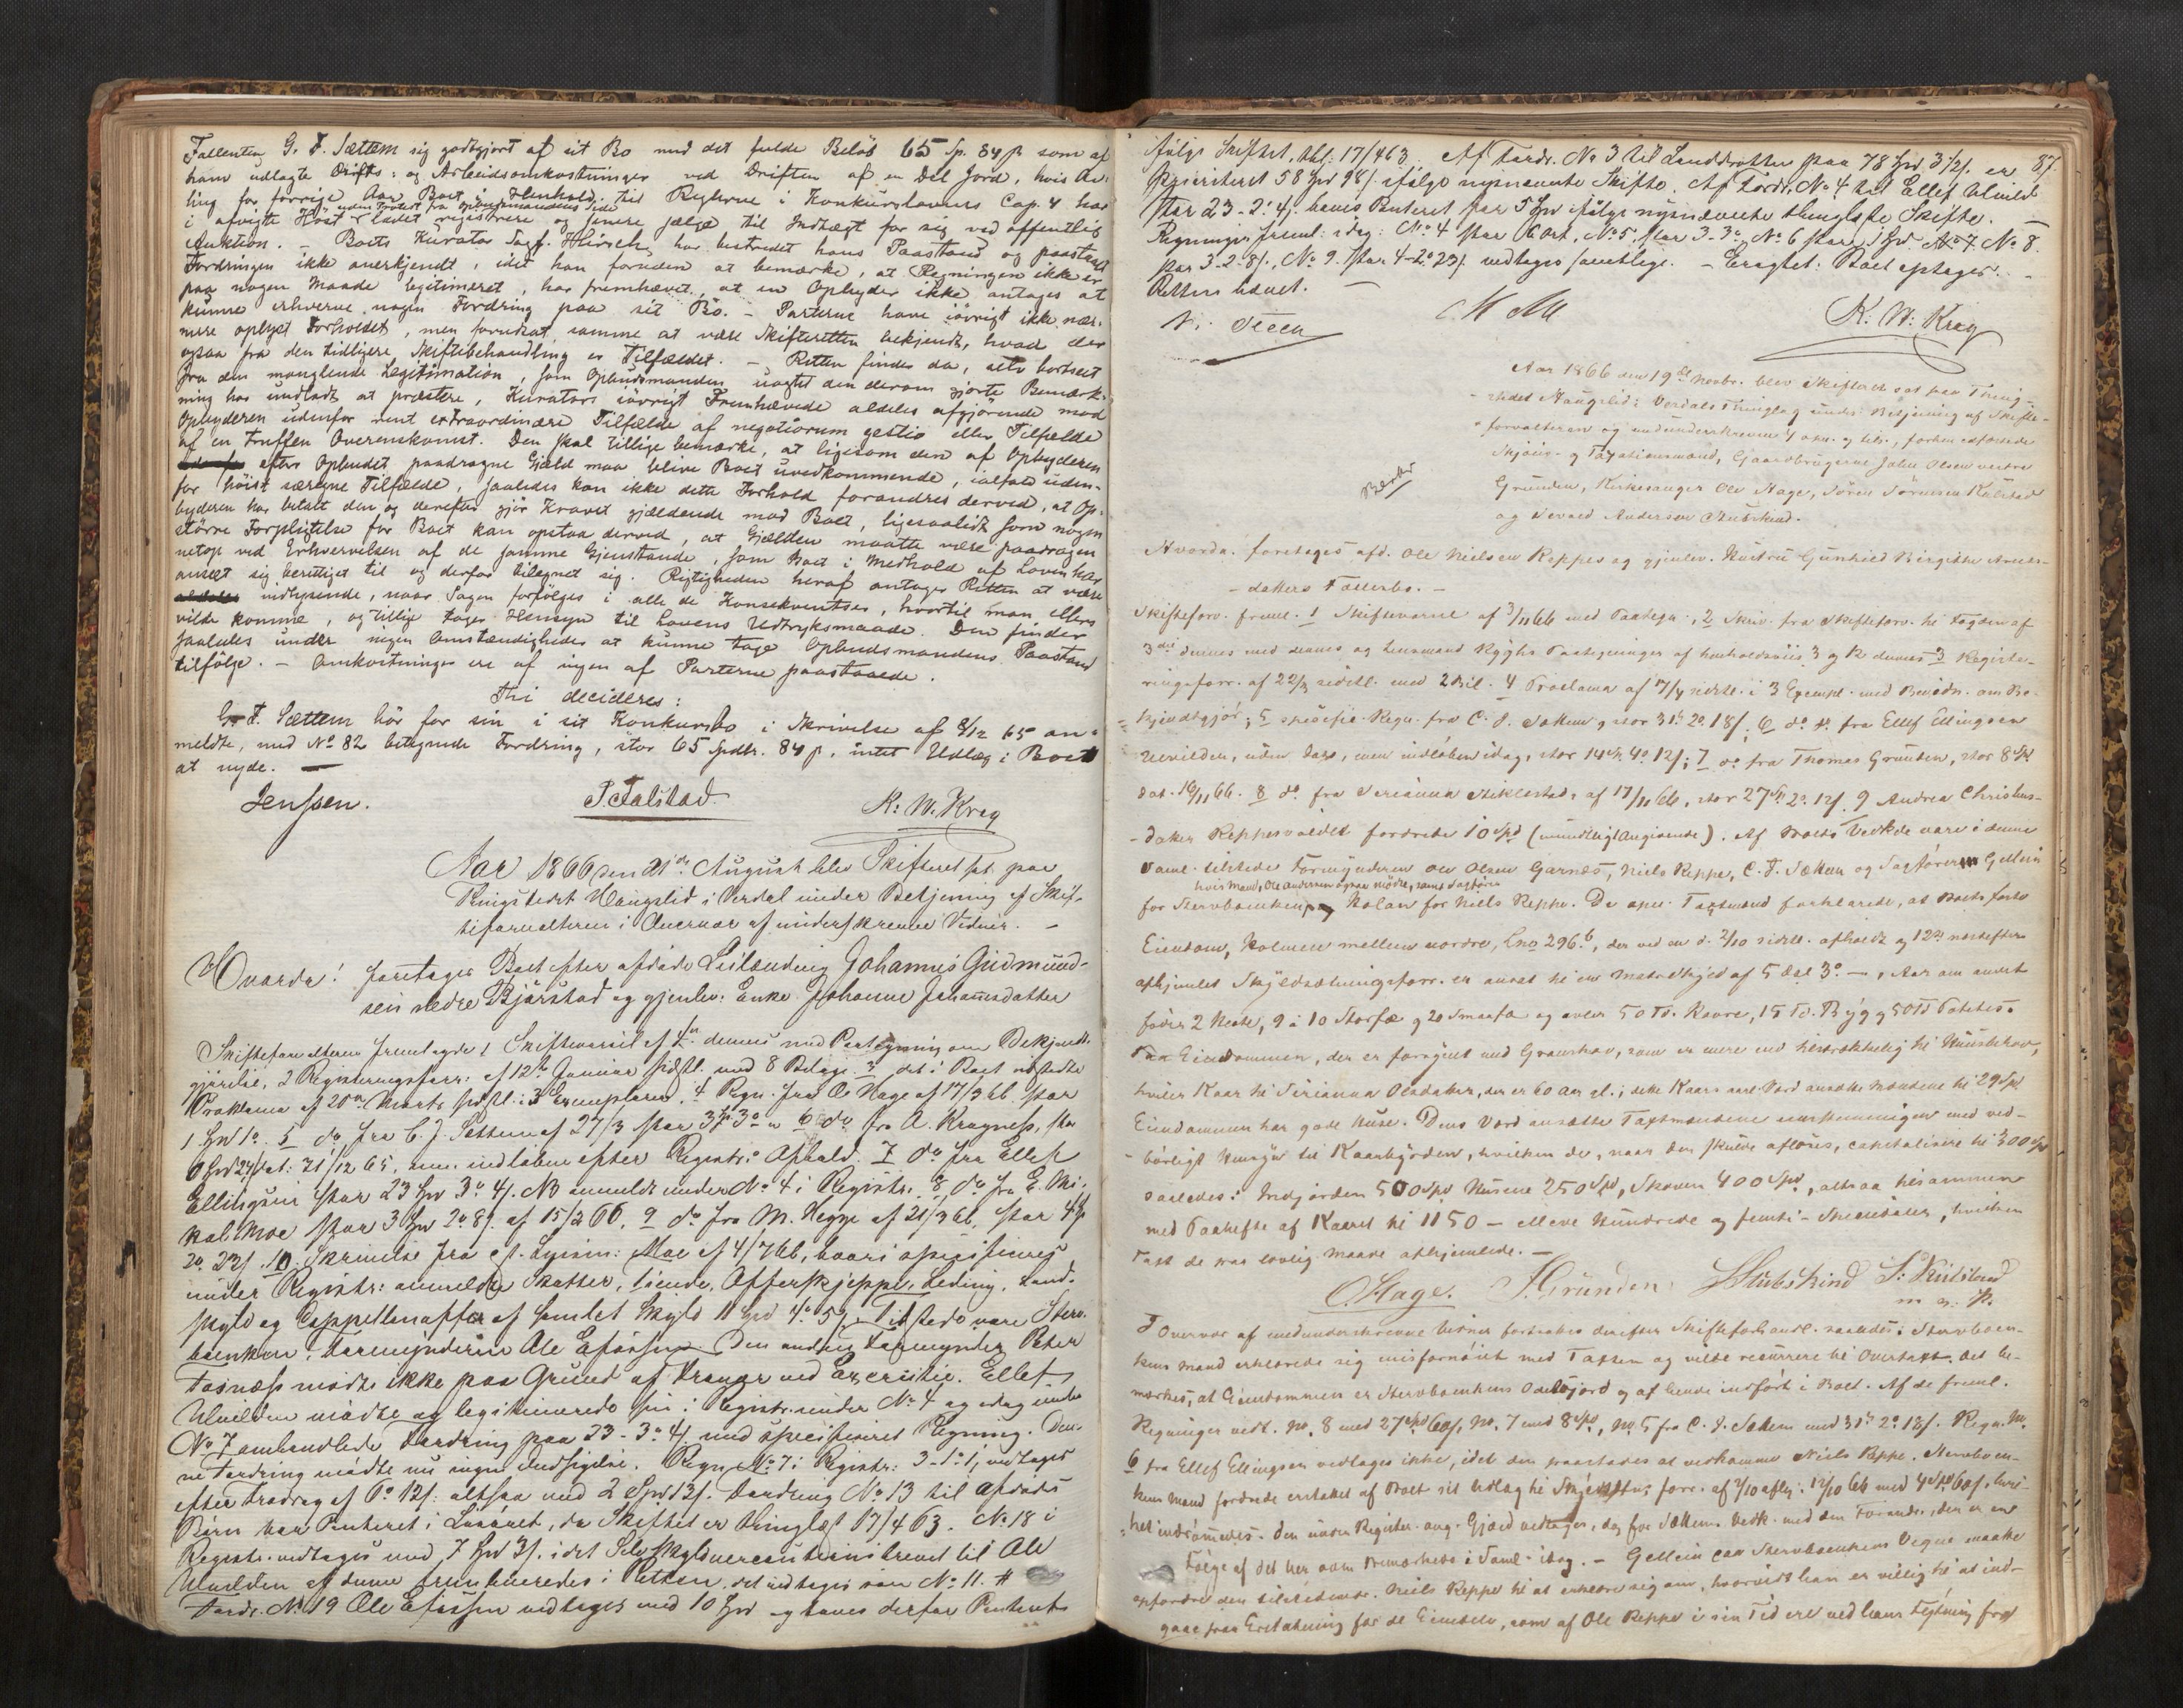 Fallenten G. F. Sættem sig godtgjort af sit Bo med det fulde Beløb 65 Sp. 84 β som af
ham udlagte Drifts: og Arbeidsomkostninger ved Driften af en Del Jord, hvis Av-
ling for forrige Aar Boet i Henhold til Reglerne i Konkurslovens Cap. 4 har
uden Protest fra Opbudsmandens Side
i afvigte Høst ladet registrere og senere sælge til Indtægt for sig ved offentlig
Auktion. – Boets Kurator Sagf. Hirsch har bestredet hans Paastand og paastaaet
Fordringen ikke anerkjendt, idet han foruden at bemærke, at Regningen ikke er
paa nogen Maade legitimeret, har fremhævet, at en Opbyder ikke antages at
kunne erhverve nogen Fordring paa sit Bo. – Parterne have iøvrigt ikke nær-
mere oplyst Forholdet, men forudsat samme at være Skifteretten bekjendt, hvad der
ogsaa fra den tidligere Skiftebehandling er Tilfældet. – Retten finder da, selv bortseet
fra den manglende Legitimation, som Opbudsmanden uagtet den derom gjorte Bemærk-
ning har undladt at præstere, Kurators iøvrigt Fremhævede aldeles afgjørende mod
Opbyderen udenfor rent extraordinære Tilfælde af negotiorum gestio eller Tilfælde
af en truffen Overenskomst. Den skal tillige bemærke, at ligesom den af Opbyderen
efter Opbudet paadragne Gjæld maa blive Boet uvedkommende, ialfald uden-
for høist særegne Tilfælde, saaledes kan ikke dette Forhold forandres derved, at Op-
byderen har betalt den og derefter gjør Kravet gjældende mod Boet, ligesaalidt som nogen
større Forpligtelse for Boet kan opstaa derved, at Gjælden maatte være paadragen
netop ved Erhvervelsen af de samme Gjenstande, som Boet i Medhold af Loven har
anseet sig berettiget til og derfor tilegnet sig. Rigtigheden heraf antager Retten at være
indlysende, naar Sagen forfølges i alle de Konsekventser, hvortil man ellers
vilde komme, og tillige tages Hensyn til Lovens Udtryksmaade. Den finder
saaledes under ingen Omstændigheder at kunne tage Opbudsmandens Paastand
tilfølge. – Omkostninger ere af ingen af Parterne paastaaede.
Thi decideres:
G. F. Sættem bør for sin i sit Konkursbo i Skrivelse af 8/12 65 an-
meldte, med No 82 betegnede Fordring, stor 65 Spdlr. 84 β, intet Udlæg i Boet
at nyde. –
Jenssen. P. Falstad. K. W. Krag
Aar 1866 den 21de August blev Skifteret sat paa
Tingstedet Haugslid i Verdal under Betjening af Skif-
teforvalteren i Overvær af underskrevne Vidner. –
Hvorda! foretages Boet efter afdøde Leilænding Johannes Gudmund-
sen nedre Bjørstad og gjenlev: Enke Johanne Johannesdatter
Skifteforvalteren fremlagde 1 Skiftevarsel af dennes med Paategning om Bekjendt-
gjørelse, 2 Registreringsforr: af 12te Januar sidstl. med 8 Bilage. 3 det i Boet udstedte
Proklama af 20de Marts sidstl. i 3 Exemplarer. 4 Regn. fra O. Hage af 17/3 66. stor
1 Spd 1o. 5 do fra C. F. Sættem af 27/3 stor 3 3o 6 do fra A. Kragness, stor
dat: 31/12 65, indløben efter Registr: Afhold. 7 do fra Ellef
Ellingsen stor 23 Spd 3o 4/. NB anmeldt under No 4 i Registr. 8 do fra E. Mi-
kal Moe stor 3 Spd 2o 8/. af 15/2 66. 9 do fra M. Hegge af 21/3 66, stor 4
2o 23/. 10 Skrivelse fra Moe af 4/7 66, hvori specificeres
under Registr: anmeldte Skatter, tiende, Offerskjeppe, Leding, Land-
skyld og Cappellanoffer af samlet Skyld 11 Spd 4o 5/. Tilstede vare Sterv-
boenken, Formynderen Ole Den anden Formynder Peter
mødte ikke paa Grund af Exercitie. Ellef
Ulvilden mødte og legitimerede sin i Registr. under No 4 og idag under
No 7 omhandlede Fordring paa 23 - 3o 4/ med specificeret Regning. Den-
ne Fordring mødte nu ingen Indsigelse. Regn. No 7 i Registr: 3 - 1o 1/ vedtages
efter Fradrag af 12/. altsaa med 2 Spd 13/. Fordring No 13 til afdødes
Børn har Panteret i Løsøret, da Skiftet er thinglæst 17/4 63. No 18 i
Registr. vedtages med 7 Spd 3/. idet til Ole
Ulvilden af denne i Retten. det vedtages som No 11. #
Fordr. No 19 Ole vedtages med 10 Spd og haves derfor Panteret
87.
ifølge Skiftet, thl: 17/4 63. Af Fordr. No 3 til Landdrotten paa 78 Spd 3 1/2/. er
Prioriteret 58 Spd 98/. ifølge nysnævnte Skifte. Af Fordr. No 4 til Ellef Ulvild
stor 23 - 2o 4/. haves Panteret for 5 Spd ifølge nysnævnte thinglæste Skifte.
Regninger freml: idag: No 4 stor 6 Ort, No 5, stor 3 - 3o No 6 stor 1 Spd No 7. No 8
stor 3 - 2 - 8/., No 9. stor 4 - 2o 23/. vedtages samtlige. – Eragtet: Boet optages. –
Retten hævet. –
N. Steen K. W. Krag
Aar 1866 den 19de Novbr. blev Skifteret sat paa Thing-
stedet Haugslid i Verdals Thinglag under Betjening af Skifte-
forvalteren og medunderskrevne 4 opn. og tils., forhen edfæstede
Skjøns- og Taxationsmænd, Gaardbrugerne John Olsen vestre
Grunden, Kirkesanger Ole Hage, Søren Sørensen Kulstad
og Sevald Andersen Stubskind.
Hvorda! foretages afd. Ole Nielsen Reppes og gjenlev. Hustru Gunhild Birgitte Anders-
datters Fællesbo. –
Skifteforv. freml. 1 Skiftevarsel af 3/11 66 med Paategn., 2 Skriv. fra Skifteforv. til Fogden af
3die dennes med dennes og Lensmand Ryghs Paategninger af henholdsviis 3 og 12 dennes 3 Registe-
ringsforr. af 22/3 sidstl. med 2 Bil. 4 Proclama af 17/4 sidstl. i 3 Exempl. med Bevidn. om Be-
kjendtgjør; 5 specific. Regn. fra C. F. Sættem, stor 31 2o 18/; 6 do fra Ellef Ellingsen
Ulvilden, uden Dato, men indløben idag, stor 14 4o 12/; 7 do fra Thomas Grunden, stor 8 Sp
dat. 16/11 66. 8 do fra Serianna Stiklestad af 17/11 66, stor 27 Sp 2o 12/. 9 Andrea Christens-
datter Reppesvaldet fordrede 10 Spd (mundtligt Angivende). Af Boets Vedkde vare i denne
Saml. tilstede Formynderen Ole Olsen Garnæs, Niels Reppe, C. F. Sættem og Sagfører Gellein
hvis Mand, Ole Andersen ogsaa mødte, samt Sagfører
for Stervboenken, Holan for Niels Reppe. De opn. Taxtmænd forklarede, at Boets faste
Eiendom, Holmen mellem nordre, Lno 296.b, der ved en d. 2/10 sidstl. afholdt og 12te næstefter
afhjemlet Skyldsætningsforr. er ansat til en Matrskyld af 5 dal 3o –, Aar om andet
føder 2 Heste, 9 à 10 Storfæ og 20 Smaafæ og avler 50 Td. Havre, 15 Td. Byg og 50 Td Potetes.
Paa Eiendommen, der er forsynet med Granskov, som er mere end tilstrækkelig til Huusbehov,
hviler Kaar til Serianna Olsdatter, der er 60 Aar gl.; dette Kaars aarl. Værd ansatte Mændene til 29 Spd
Eiendommen har gode Huse. Dens Værd ansatte Taxtmændene eenstemmigen med ved-
børligt Hensyn til Kaarbyrden, hvilken de, naar den skulde afløses, capitalisere til 300 Spd
saaledes: Indjorden 500 Spd Husene 250 Spd, Skoven 400 Spd, altsaa tilsammen
med Paahefte af Kaaret til 1150 – elleve Hundrede og femti – Speciedaler, hvilken
Taxt de paa lovlig Maade afhjemlede. –
O. Hage. J. Grunden. S. Stubskind S. Kulstad
m. p. P.
I Overvær af medunderskrevne Vidner fortsattes derefter Skifteforhandl. saaledes: Stervboen-
kens Mand erklærede sig misfornøiet med Taxten og vilde recurrere til Overtaxt. Det be-
mærkes, at Eiendommen er Stervboenkens Odelsjord og af hende indført i Boet. Af de freml.
Regninger vedt. No. 8 med 27 Spd 60/, No. 7 med 8 Spd, No 5 fra C. F. Sættem med 31 2o 18/. Regn. No.
6 fra Ellef Ellingsen vedtages ikke, idet den paastodes at vedkomme Niels Reppe. Stervboen-
kens Mand fordrede erstattet af Boet sit Udlæg til Skyldsætn.forr. af 2/10 aflj. 12/10 66 med 4 Spd 60/, hvil-
ket indrømmes. Den under Registr. ang. Gjæld vedtages, dog for Sættems Vedk. med den Forandr., der er en
Følge af det her ovm Bemærkede i Saml. idag. – Gellein paa Stervboenkens Vegne maatte
opfordre den tilstedevær. Niels Reppe til at erklære sig om, hvorvidt han er villig til at ind-
gaae paa Erstatning for de Eiendele, som af Ole Reppe i sin Tid ere ved hans Flytning fra